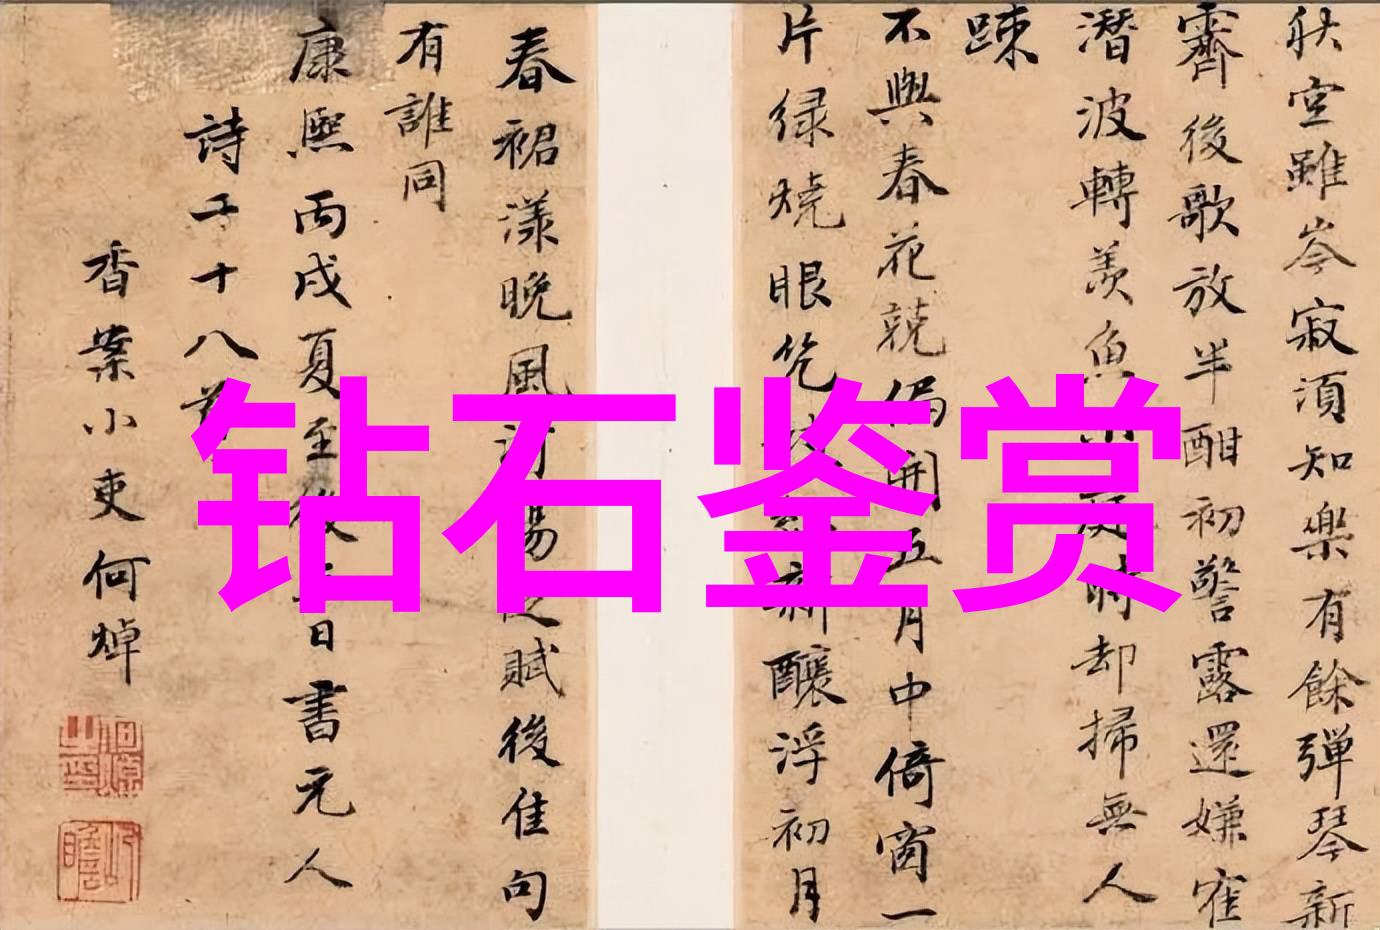 秋室雖岑寂須知樂有餘彈琴新
霽後歌放半酣初警露還嫌宿
潛波轉羨魚小庭時却掃無人
踈
不與春花競偏開五月中倚窗一
片緑燒眼
新釀浮初月
春裙漾晚風
賦後佳句
有誰同
康熙丙戌夏至後 日書元人
詩二十八首
香案小吏何焯
钻石鉴赏